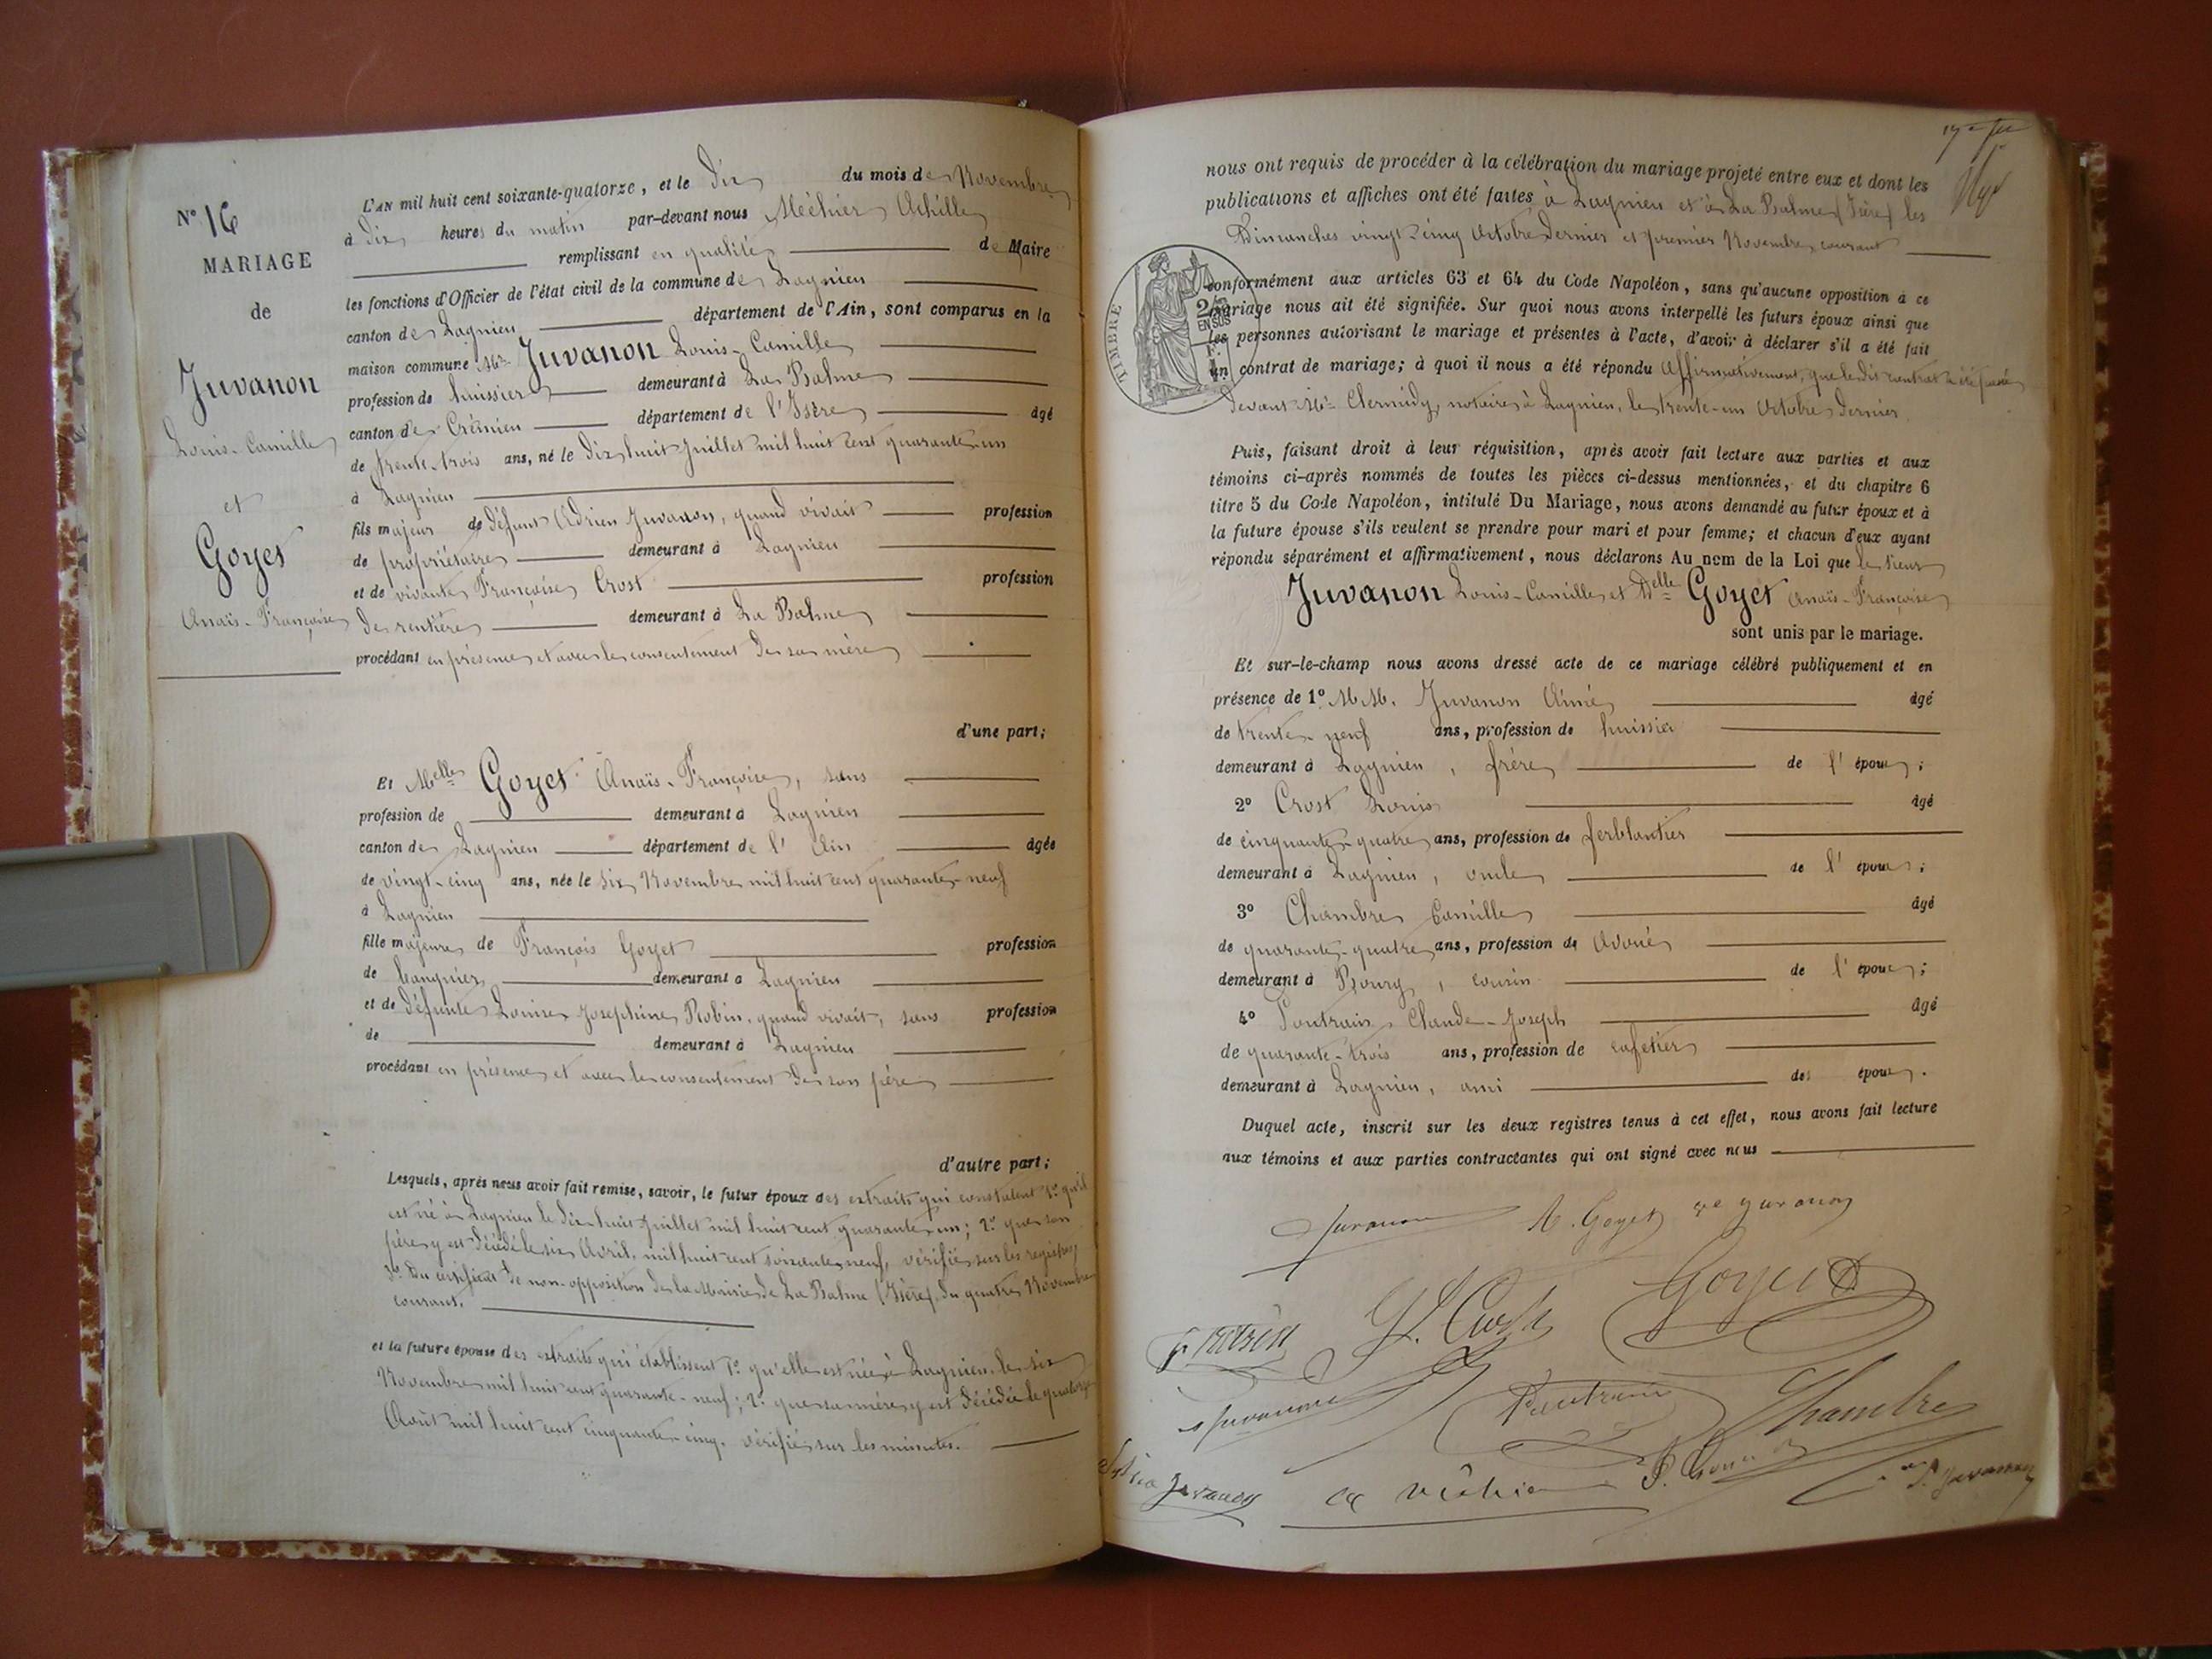 N° 16
MARIAGE
de
Juvanon
Louis-Camille
et
Goyet
Anaïs-Françoise
L'AN mil huit cent soixante-quatorze, et le dix du mois de Novembre
à dix heures du matin par-devant nous Méhier Achille
remplissant en qualité de Maire
les fonctions d'Officier de l'état civil de la commune de Lagnieu
canton de Lagnieu département de l'Ain, sont comparus en la
maison commune Mr. Juvanon Louis-Camille
profession de huissier demeurant à La Balme
canton de Crémieu département de l'Isère âgé
de trente-trois ans, né le dix huit Juillet mil huit cent quarante-un
à Lagnieu
fils majeur de défunt Adrien Juvanon, quand vivait profession
de propriétaire demeurant à Lagnieu
et de vivante Françoise Crost profession
de rentière demeurant à La Balme
procédant en présence et avec le consentement de sa mère
d'une part;
Et Melle Goyet Anaïs-Françoise, sans
profession de demeurant à Lagnieu
canton de Lagnieu département de l'Ain âgée
de vingt-cinq ans, née le six Novembre mil huit cent quarante-neuf
à Lagnieu
fille majeure de François Goyet profession
de banquier demeurant à Lagnieu
et de défunte Louise Joséphine Robin, quand vivait, sans profession
de demeurant à Lagnieu
procédant en présence et avec le consentement de son père
d'autre part;
Lesquels, après nous avoir fait remise, savoir, le futur époux des extraits qui constatent 1° qu'il
est né à Lagnieu le dix huit Juillet mil huit cent quarante-un; 2° que son
père y est décédé le six Avril mil huit cent soixante neuf, vérifié sur les registres
3° Du certificat de non-opposition de la Mairie de La Balme (Isère), du quatre Novembre
courant.
et la future épouse des extraits qui établissent 1° qu'elle est née à Lagnieu, le six
Novembre mil huit cent quarante-neuf; 2° que sa mère y est décédée le quatorze
Août mil huit cent cinquante-cinq, vérifié sur les minutes.
nous ont requis de procéder à la célébration du mariage projeté entre eux et dont les
publications et affiches ont été faites à Lagnieu et à La Balme (Isère) les
Dimanches vingt cinq Octobre dernier et premier Novembre courant
TIMBRE
2/10
EN SUS
conformément aux articles 63 et 64 du Code Napoléon, sans qu'aucune opposition à ce
mariage nous ait été signifiée. Sur quoi nous avons interpellé les futurs époux ainsi que
les personnes autorisant le mariage et présentes à l'acte, d'avoir à déclarer s'il a été fait
un contrat de mariage; à quoi il nous a été répondu Affirmativement, que le dit contrat a été passé
devant Me Chermidy, notaire à Lagnieu, le trente-un Octobre dernier.
Puis, faisant droit à leur réquisition, après avoir fait lecture aux parties et aux
témoins ci-après nommés de toutes les pièces ci-dessus mentionnées, et du chapitre 6
titre 5 du Code Napoléon, intitulé Du Mariage, nous avons demandé au futur époux et à
la future épouse s'ils veulent se prendre pour mari et pour femme; et chacun d'eux ayant
répondu séparément et affirmativement, nous déclarons Au nom de la Loi que le sieur
Juvanon Louis-Camille et Delle Goyet Anaïs-Françoise
sont unis par le mariage.
Et sur-le-champ nous avons dressé acte de ce mariage célébré publiquement et en
présence de 1° M.M. Juvanon Aimé âgé
de trente-neuf ans, profession de huissier
demeurant à Lagnieu, frère de l'époux;
2° Crost Louis âgé
de cinquante-quatre ans, profession de ferblantier
demeurant à Lagnieu, oncle de l'époux;
3° Chambre Camille âgé
de quarante-quatre ans, profession de Avoué
demeurant à Bourg, cousin de l'époux;
4° Pontrain Claude-Joseph âgé
de quarante-trois ans, profession de cafetier
demeurant à Lagnieu, ami des époux.
Duquel acte, inscrit sur les deux registres tenus à cet effet, nous avons fait lecture
aux témoins et aux parties contractantes qui ont signé avec nous
Juvanon A. Goyet ve Juvanon
L. Crost Goyet
Juvanon Chambre
Juvanon